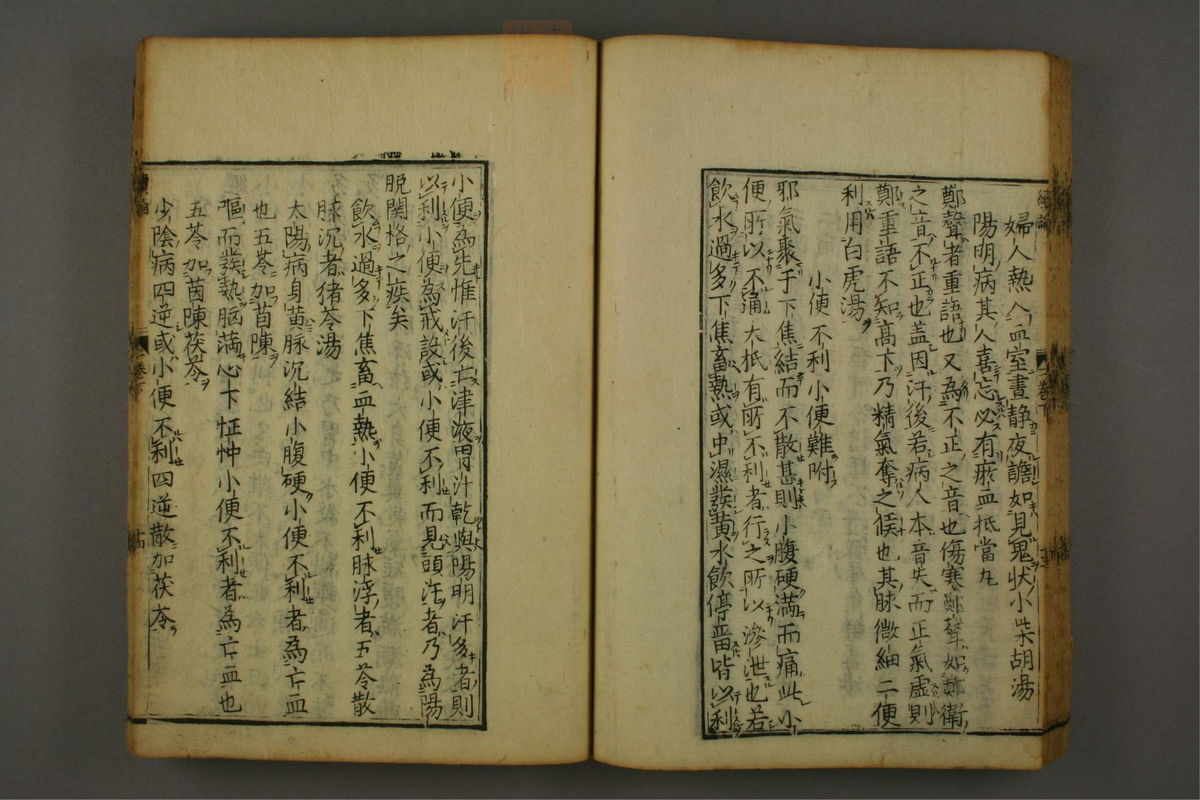 婦人熱入血室晝静夜譫如見鬼狀小柴胡湯
陽明病其人喜忘必有瘀血抵當丸
鄭聲者重語也又為不正之音也傷寒鄭聲如鄭衛
之音不正也盖因汗後若病人本音失而正氣虚則
鄭重語不知高下乃精氣奪之候也其脉微細二便
利用白虎湯
小便不利小便難附
邪氣聚于下焦結而不散甚則小腹硬满而痛此小
便所以不通大抵有所不利者行之所以滲泄也若
飲水過多下焦畜熱或中濕發黄水飲停畜皆以利
小便為先惟汗後亡津液胃汁乾與陽明汗多者則
以利小便為戒設或小便不利而見頭汗者乃為陽
脱関格之疾矣
飲水過多下焦畜血熱小便不利脉浮者五苓散
脉沉者猪苓湯
太陽病身黄脉沉結小腹硬小便不利者為亡血
也五苓加茵陳
嘔而發熱胸满心下怔忡小便不利者為亡血也
五苓加茵陳茯苓
少陰病四逆或小便不利四逆散加茯苓